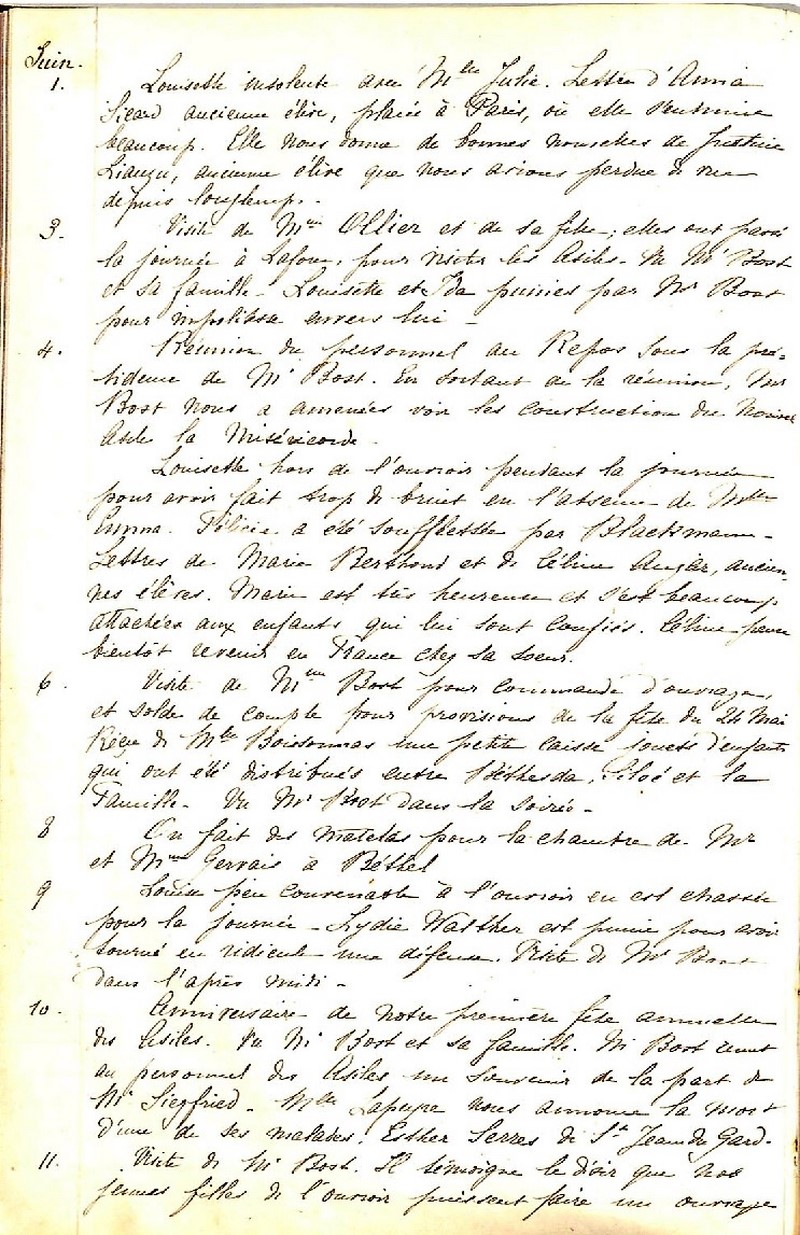 Juin.
1. Louisette insolente avec Mlle Julie. Lettre d'Anna
Sicard ancienne élève, placée à Paris, où elle s'ennuie
beaucoup. Elle nous donne de bonnes nouvelles de Justine
ancienne élève que nous avions perdue de vue
depuis longtemps.
3. Visite de Mme Ollier et de sa fille; elles ont passé
la journée à Laforce, pour visiter les Asiles. Vu Mr Bost
et sa famille. Louisette et Ida punies par Mr Bost
pour impolitesse envers lui.
4. Réunion du personnel au Repos sous la pré-
sidence de Mr Bost. En sortant de la réunion, Mr
Bost nous a amenées voir les construction du nouvel
Asile la Miséricorde.
Louisette hors de l'ouvroir pendant la journée
pour avoir fait trop de bruit en l'absence de Mlle
Emma. Félicie a été souffletée par Blackmann.
Lettres de Marie Berthond et de Céline Augér, ancien-
nes élèves. Marie est très heureuse et s'est beaucoup
attachées aux enfants qui lui sont confiés. Céline pense
bientôt revenir en France chez sa soeur.
6. Visite de Mme Bost pour commande d'ouvrage,
et solde de compte pour provisions de la fête du 24 Mai
Reçu de Mlle Boissonnas une petite caisse jouets d'enfants
qui ont été distribués entre Béthesda, Siloé et la
Famille. Vu Mr Bost dans la soirée.
8 On fait des matelas pour la chambre de Mr
et Mme Gervais à Béthel
9 Louise peu convenable à l'ouvroir en est chassée
pour la journée. Lydie Walther est punie pour avoir
tourné en ridicule une défense. Visite de Mr Bost
dans l'après midi.
10. Anniversaire de notre première fête annuelle
des Asiles. Vu Mr Bost et sa famille. Mr Bost remet
au personnel des Asiles un souvenir de la part de
Mr Siegfried. Mlle nous annonce la mort
d'une de ses malades, Esther Serres de St Jean du Gard.
11. Visite de Mr Bost. Il témoigne le désir que nos
jeunes filles de l'ouvroir puissent faire un ouvrage